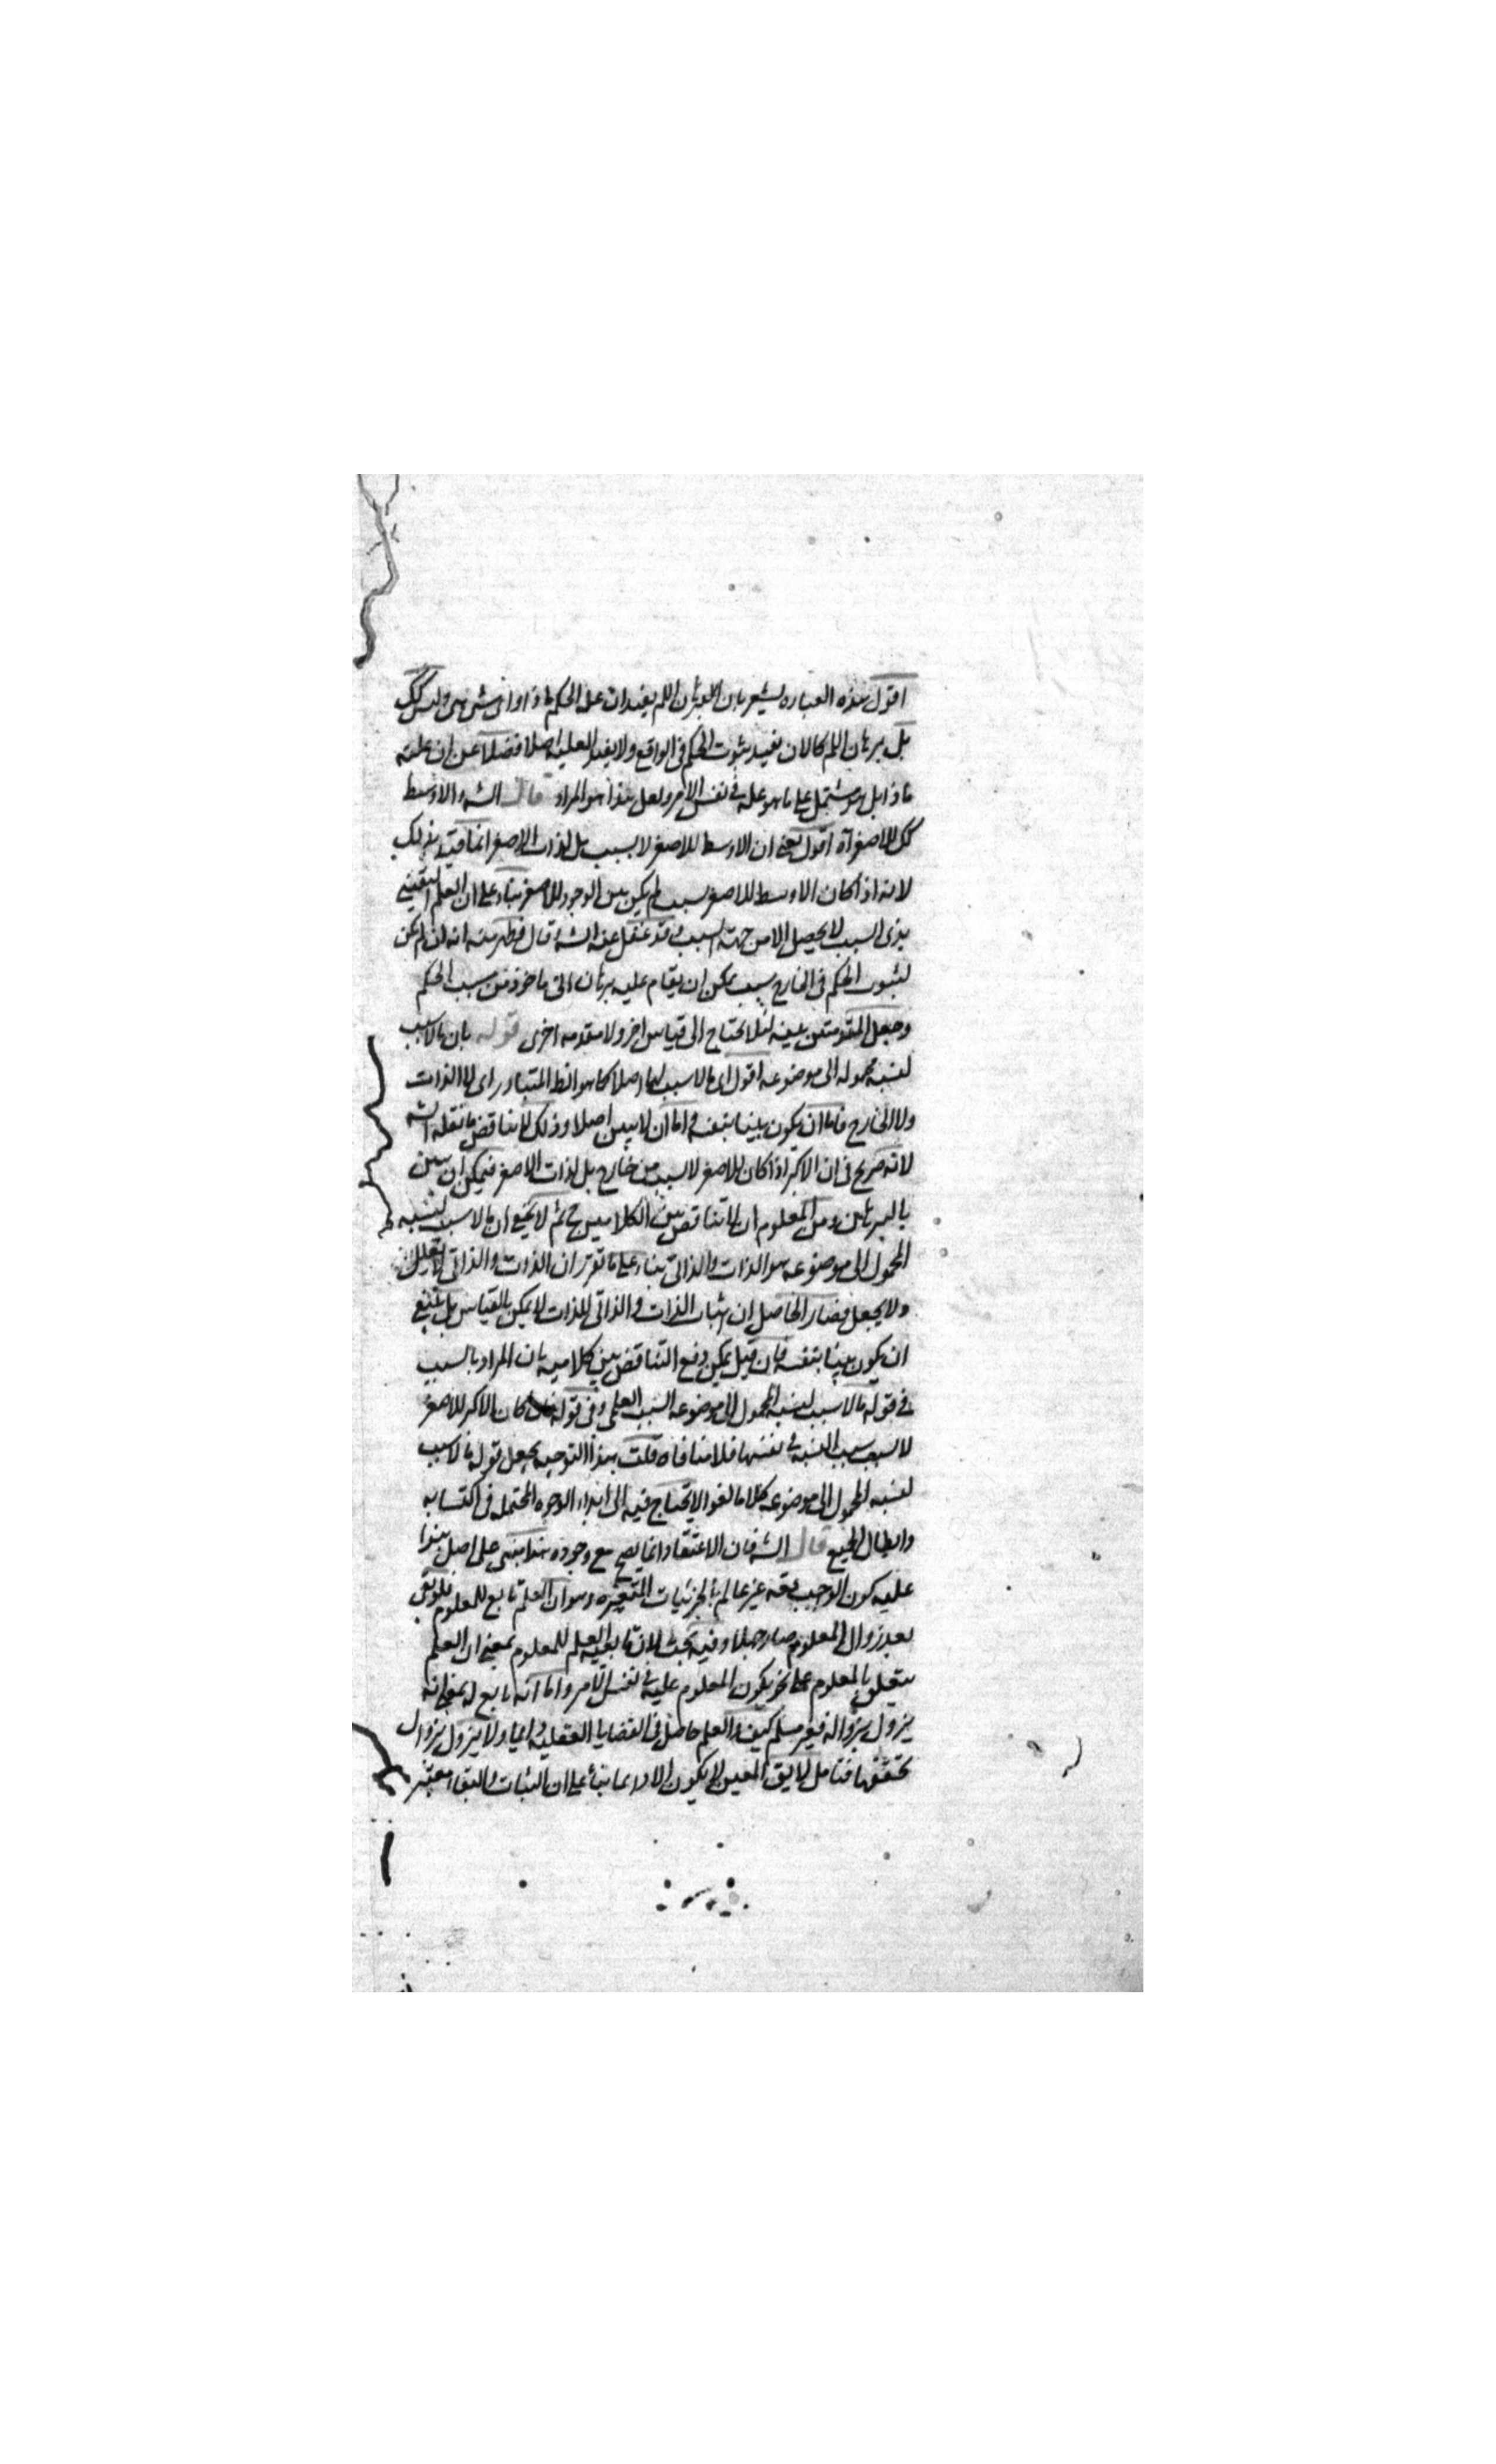 اقول هذه العباره يشعر بان البرهان اللم يفيد ان علة الحكم ماذا واى شىء هى وليس كذلك
بل برهان اللم كالان يفيد ثبوت الحكم فى الواقع ولا يفيد العليه اصلا فضلا عن ان علته
ماذا بل هو مشتمل على ما هو علة فى نفس الامر ولعل هذا هو المراد قال الشه والاوسط
كك للاصغر آه اقول يعنى ان الاوسط للاصغر لا بسبب بل لذات الاصغر انما قيد بذلك
لانه اذا كان الاوسط للاصغر بسبب لم يكن بين الوجود للاصغر بناء على ان العلم اليقينى
بذى السبب لا يحصل الا من جهة السبب وقد غفل عنه الشه وقال فظهر منه انه ان لم يكن
لثبوت الحكم فى الخارج سبب يمكن ان يقام عليه برهان انى ماخوذ من سبب الحكم
وجعل المقدمتين بينه لئلا يحتاج الى قياس اخر ولا مقدمه اخرى قوله بان ما لا سبب
لنسبه محموله الى موضوعه اقول اى ما لا سبب لها اصلا كما هو الظ المتبادر اى لا الذات
ولا الخارج فاما ان يكون بينا بنفسه واما ان لا يبين اصلا وذلك لا يناقض ما نقله الشه
لانه صريح فى ان الاكبر اذا كان للاصغر لا بسبب من خارج بل لذات الاصغر فيمكن ان يبين
بالبرهان ومن المعلوم ان لا تناقض بين الكلامين ح ثم لا يخفى ان ما لا سبب لنسبه
المحمول الى موضوعه هو الذات والذاتى بناء على ما تقرر ان الذات والذاتى لا يعلل
ولا يجعل فصار الحاصل ان اثبات الذات والذاتى للذات لا يمكن بالقياس بل ينبغى
ان يكون بينا بنفسه فان قيل يمكن دفع التناقض بين كلاميه بان المراد بالسبب
فى قوله ما لا سبب لنسبه المحمول الى موضوعه السبب العلمى وفى قوله كان الاكبر للاصغر
لا بسبب سبب النسبه فى نفسها فلا منافاه قلت بهذا التوجيه يجعل قوله ما لا سبب
لنسبه المحمول الى موضوعه كلاما لغوا لا يحتاج فيه الى ابداء الوجوه المحتمله فى اكتسابه
وابطال الجميع قال الشه فان الاعتقاد انما يصح مع وجوده هذا مبنى على اصل بنوا
عليه كون الواجب تعه غير عالم بالجزئيات المتغيره وهو ان العلم تابع للمعلوم فلو بقى
بعد زوال المعلوم صار جهلا وفيه بحث لان تابعيه العلم للمعلوم بمعنى ان العلم
يتعلق بالمعلوم على نحو يكون المعلوم عليه فى نفس الامر واما انه تابع له بمعنى انه
يزول بزواله فغير مسلم كيف والعلم حاصل فى القضايا العقليه دائما ولا يزول بزوال
تحققها فتامل لا يق اليقين لا يكون الا دائما بناء على ان الثبات والبقاء معتبر